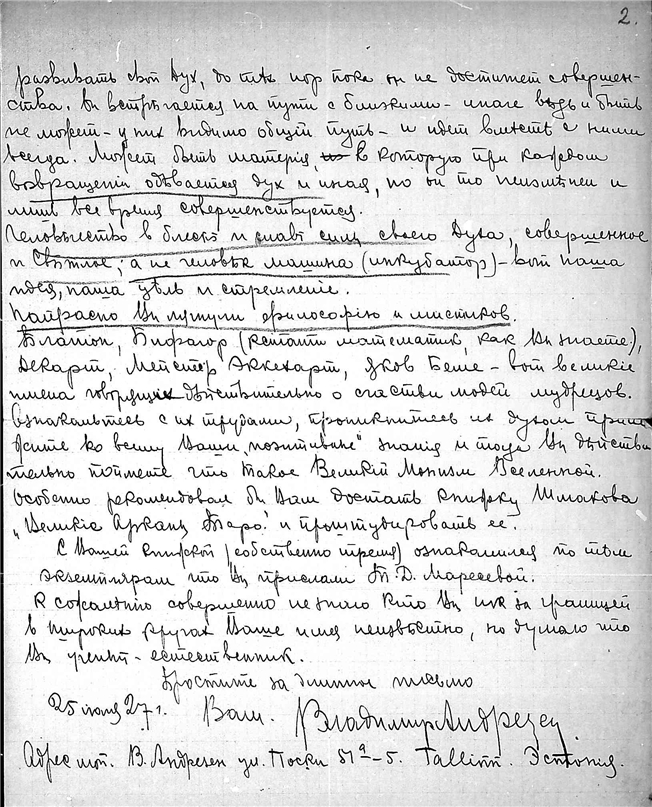 2.
развивать свой Дух, до тѣх пор пока он не достигнет совершен-
ства. Он встрѣчается на пути с близкими - иначе вѣдь и быть
не может - у них видимо общiй путь - и идет вмѣстѣ с ними
всегда. Может быть матерiя, в которую при каждом
возвращенiи одѣвается дух и иная, но он то неизмѣнен и
лишь все время совершенствуется.
Человѣчество в блескѣ и славѣ силы своего Духа, совершенное
и Свѣтлое, а не человѣк машина (инкубатор) - вот наша
идея, наша цѣль и стремленiе.
Напрасно Вы ругули философiю и мистиков.
Платон, Пифагор (кстати математик, как Вы знаете),
Декарт, Мейстер Эккехарт, Яков Беме - вот великiе
имена говорящих дѣйствительно о счастьи людей мудрецов.
Ознакомьтесь с их трудами, проникнитесь их духом прило
жите ко всему Ваши „позитивные" знанiя и тогда Вы дѣйстви
тельно поймете что такое Великiй Монизм Вселенной.
Особенно рекомендовал бы Вам достать книжку Шмакова
„Великiе Арканы Таро" и проштудировать ее.
С Вашей книжкой (собственно тремя) ознакомился по тѣм
экземплярам что Вы прислали Т. Д. Маресевой.
К сожалѣнiю совершенно не знаю кто Вы ибо за границей
в широких кругах Ваше имя неизвѣстно, но думаю что
Вы ученый - естественник.
Простите за длинное письмо
25 июля 27 г. Ваш. Владимир Андрезен
Адрес мой. В. Андрезен ул. Поска 51ª-5. Tallinn. Эстонiя.